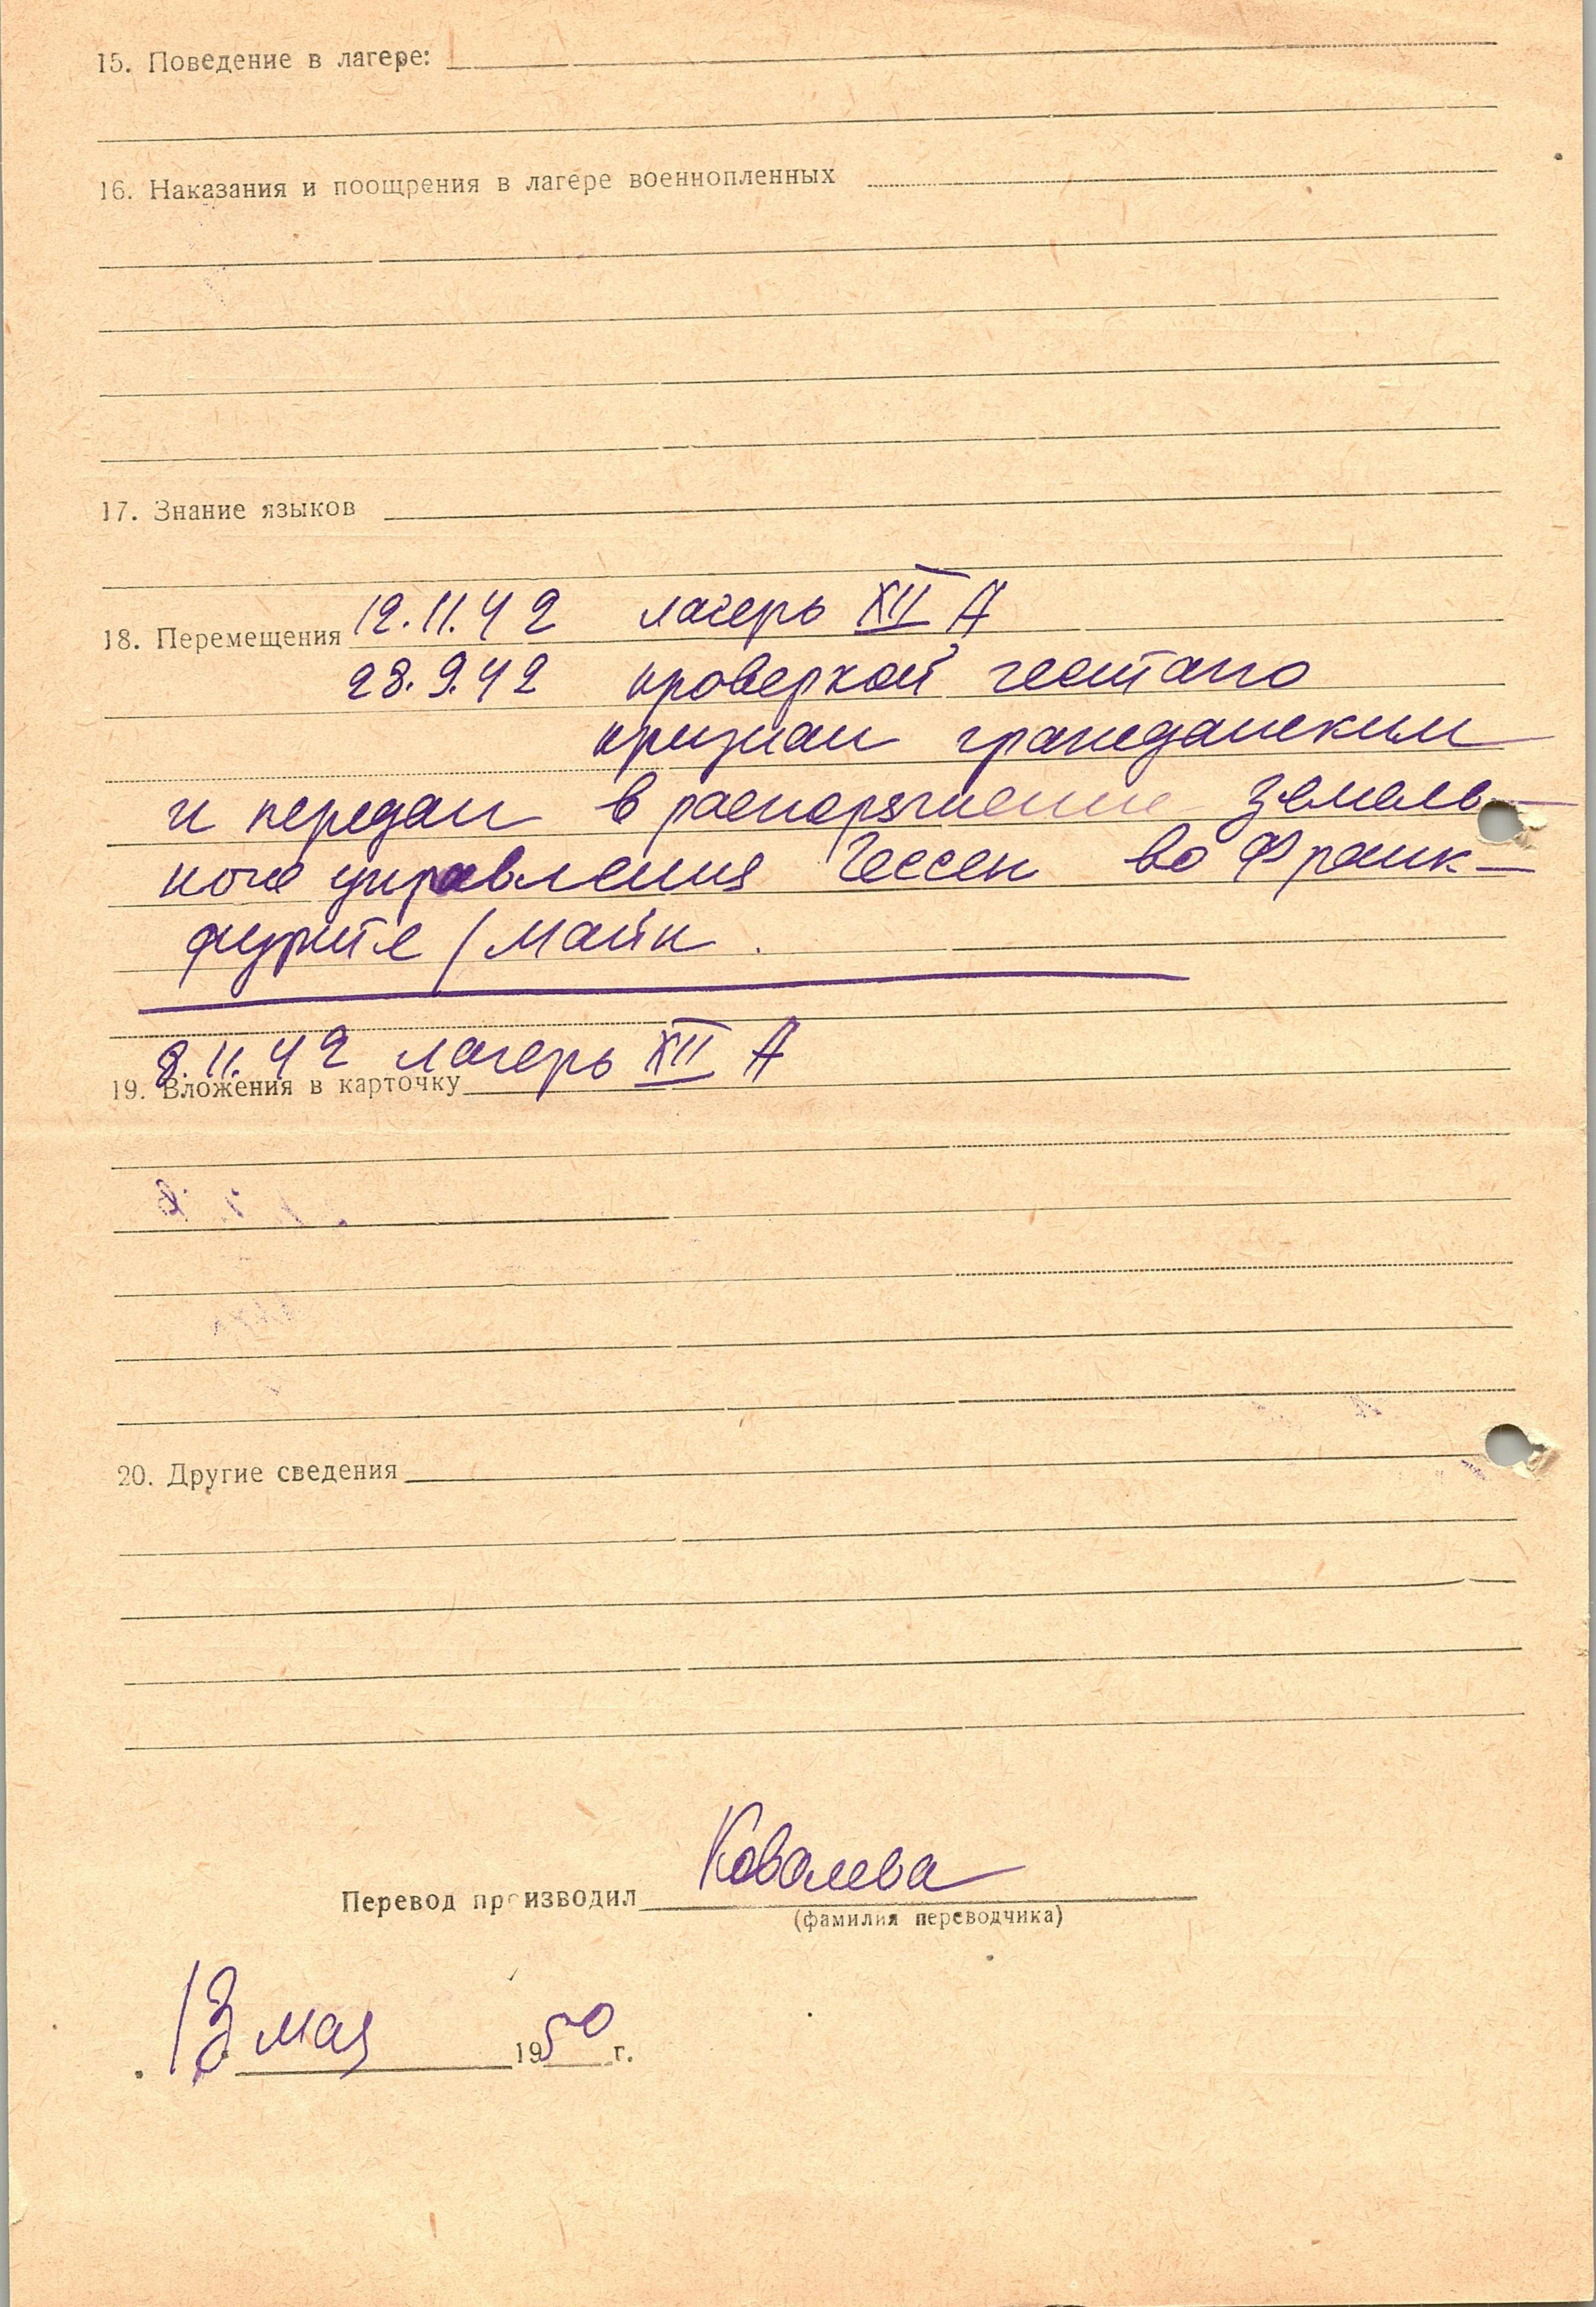 15. Поведение в лагере:
16. Наказания и поощрения в лагере военнопленных
17. Знание языков
18. Перемещения 12.11.42 лагерь XII А
28.9.42 проверкой гестапо
признан гражданским
и передан в распоряжение земель-
ного управления Гессен во Франк-
фурте / Майн.
8.11.42 лагерь XII А
19. Вложения в карточку
20. Другие сведения
Перевод производил Ковалева
(фамилия переводчика)
13 мая 1950 г.